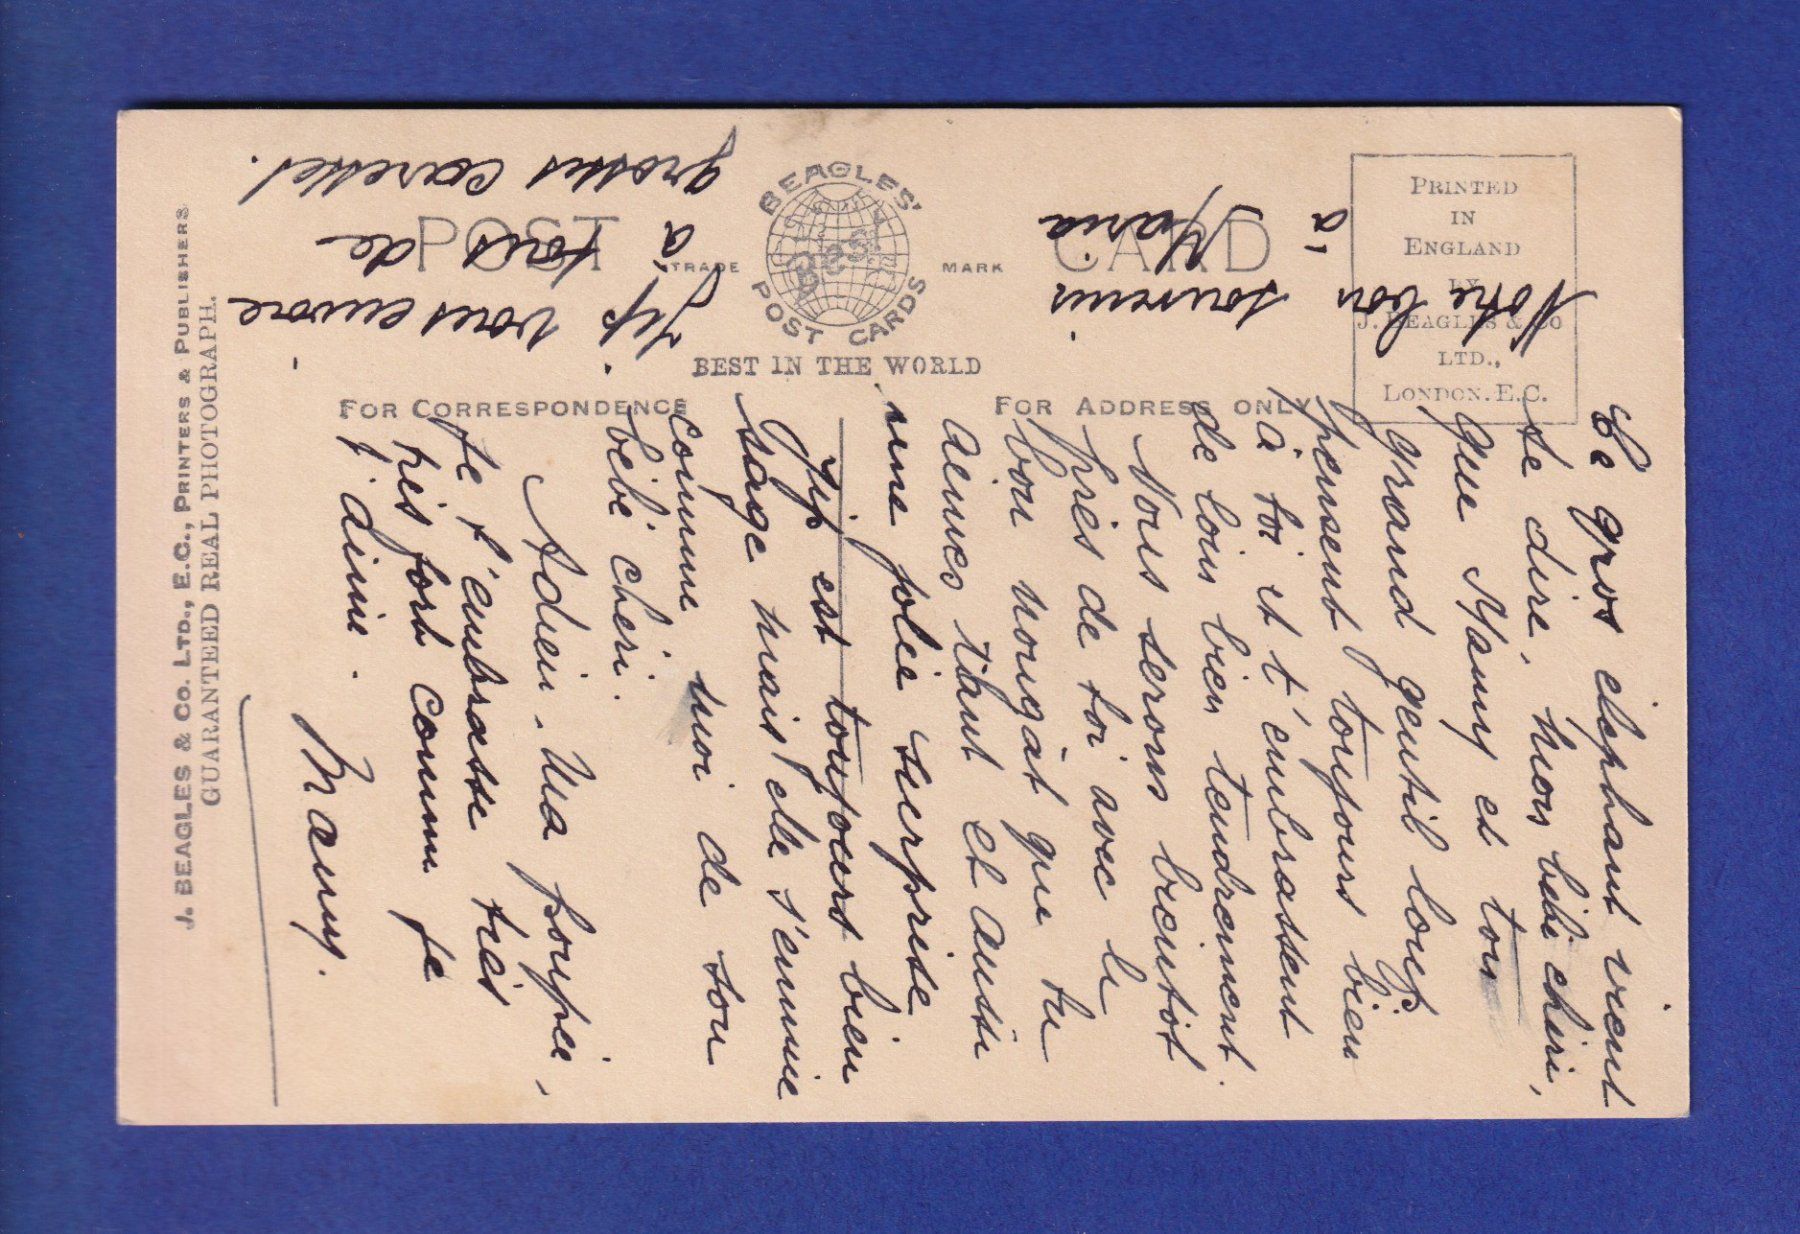 POST CARD
BEAGLES' POST CARDS
TRADE MARK
BEST IN THE WORLD
PRINTED
IN
ENGLAND
BY
J. BEAGLES & CO
LTD.,
LONDON. E.C.
FOR CORRESPONDENCE
FOR ADDRESS ONLY
J. BEAGLES & Co. LTD., E.C., PRINTERS & PUBLISHERS
GUARANTEED REAL PHOTOGRAPH.
Ce gros éléphant vient
te dire, mon bébé chéri,
que Many et ton
grand gentil loup
pensent toujours bien
à toi et t'embrassent
de loin bien tendrement.
Nous serons bientôt
près de toi avec le
bon nougat que tu
aimes tant et aussi
une jolie surprise.
Gyp est toujours bien
sage mais elle s'ennuie
comme moi de son
bébé chéri.
Adieu. Ma poupée,
je t'embrasse très
très fort comme je
t'aime.
Many.
Notre bon souvenir
à Maria
Gyp vous envoie
à tous de
grosses caresses.